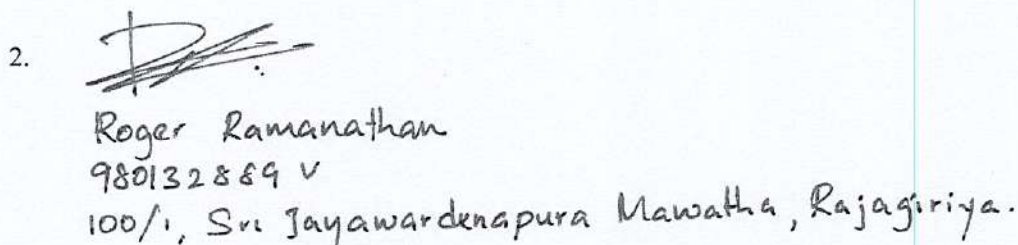 2.
Roger Ramanathan
980132889 V
100/1, Sri Jayawardenapura Mawatha, Rajagiriya.